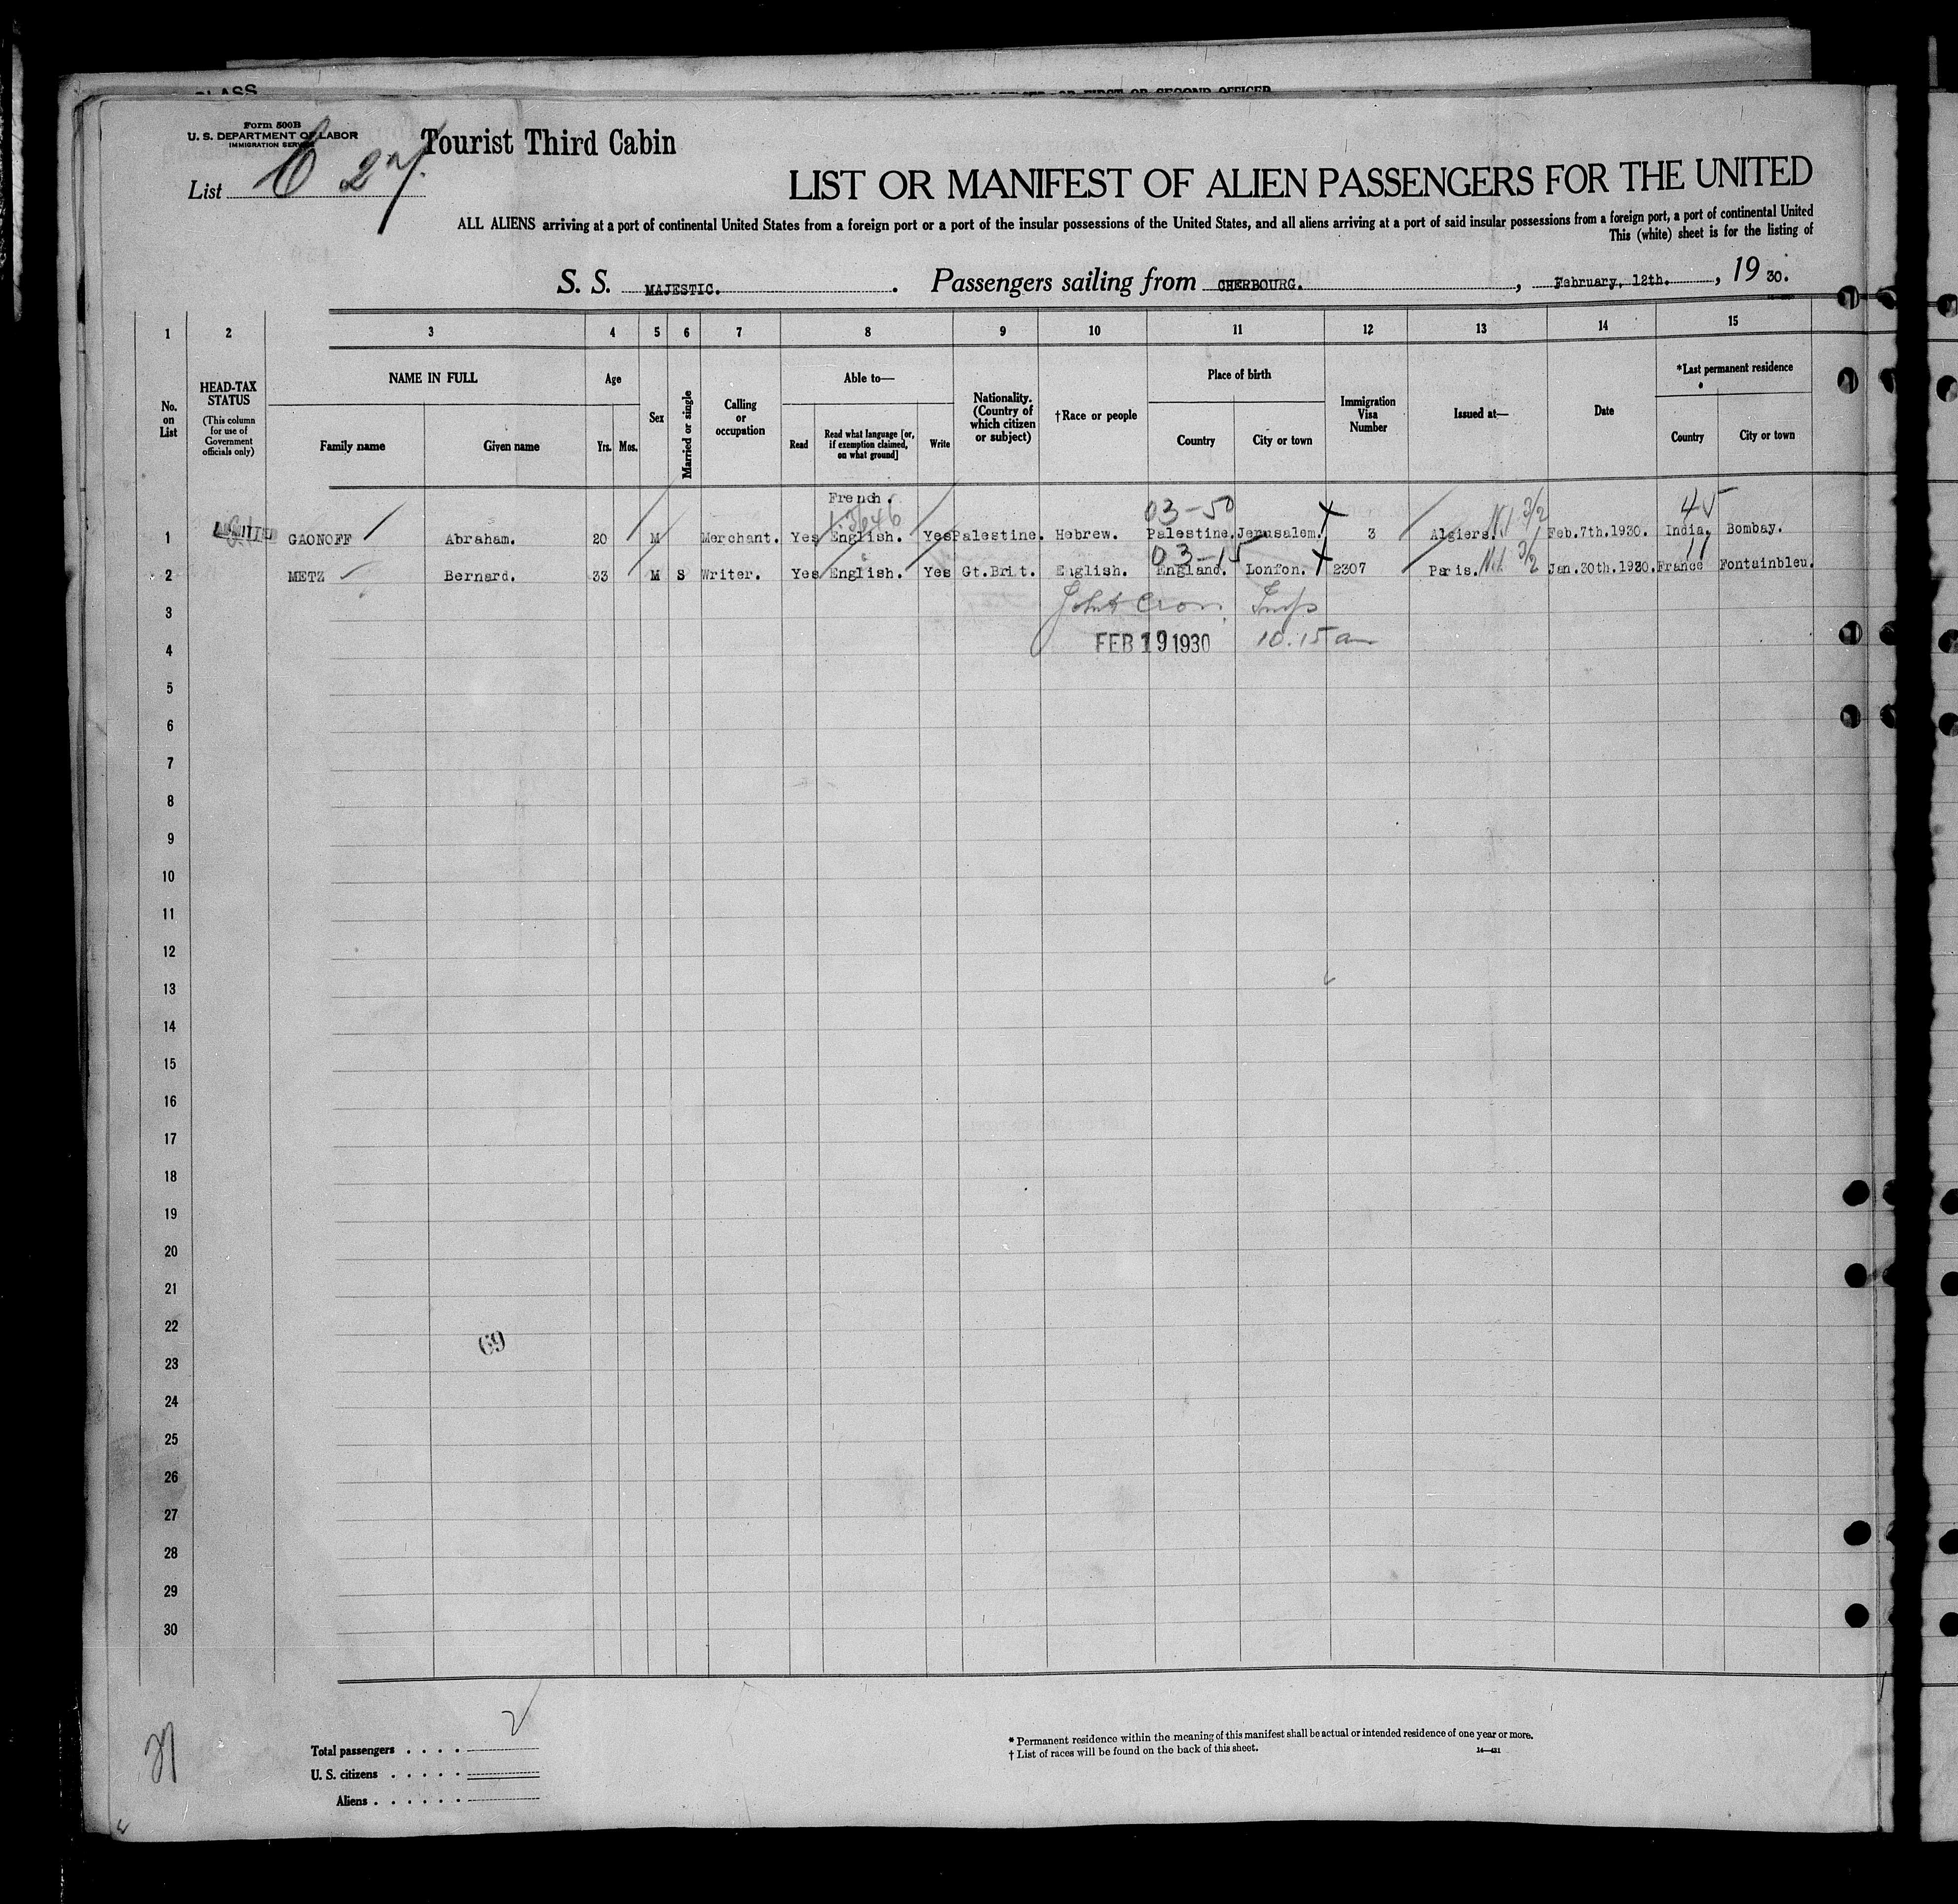 Form 500B
U. S. DEPARTMENT OF LABOR
IMMIGRATION SERVICE
Tourist Third Cabin
List
LIST OR MANIFEST OF ALIEN PASSENGERS FOR THE UNITED
ALL ALIENS arriving at a port of continental United States from a foreign port or a port of the insular possessions of the United States, and all aliens arriving at a port of said insular possessions from a foreign port, a port of continental United
This (white) sheet is for the listing of
S. S. MAJESTIC. Passengers sailing from CHERBOURG. , February, 12th. , 19 30.
1 2 3 4 5 6 7 8 9 10 11 12 13 14 15
No. on List
HEAD-TAX STATUS
(This column for use of Government officials only)
NAME IN FULL
Family name Given name
Age
Yrs. Mos.
Sex
Married or single
Calling or occupation
Able to—
Read
Read what language [or, if exemption claimed, on what ground]
Write
Nationality. (Country of which citizen or subject)
†Race or people
Place of birth
Country City or town
Immigration Visa Number
Issued at—
Date
*Last permanent residence
Country City or town
French.
03-50 3/2 45
1 GAONOFF Abraham. 20 M Merchant. Yes English. Yes Palestine. Hebrew. Palestine. Jerusalem. 3 Algiers. Feb.7th.1930. India. Bombay.
03-15 3/2 11
2 METZ Bernard. 33 M S Writer. Yes English. Yes Gt.Brit. English. England. Lonfon. 2307 Paris. Jan.30th.1930. France Fontainbleu.
3
4 FEB 19 1930 10.15 am
5
6
7
8
9
10
11
12
13
14
15
16
17
18
19
20
21
22
69
23
24
25
26
27
28
29
30
Total passengers . . . .
U. S. citizens . . . . .
Aliens . . . . . .
* Permanent residence within the meaning of this manifest shall be actual or intended residence of one year or more.
† List of races will be found on the back of this sheet.
14—421